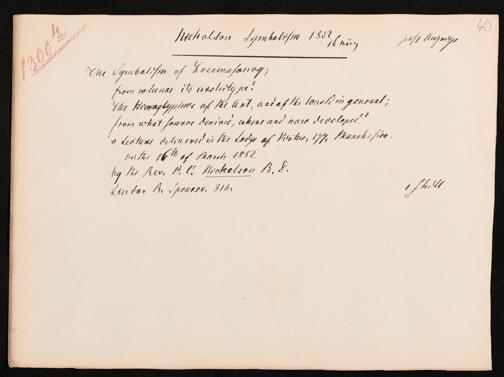 40
1300 4
Nicholson Symbolism 1852
16 März
The Symbolism of Freemasonry;
from whence its prototype?
The Hieroglyphics of the Art, and of the World in general;
from what source derived, where and now developed?"
a Lecture delivered in the Lodge of Virtue, 177, Manchester.
on the 16th of March 1852
by the Rev. P. C. Nicholson B. D.
London R. Spencer. 314.
1 Shill